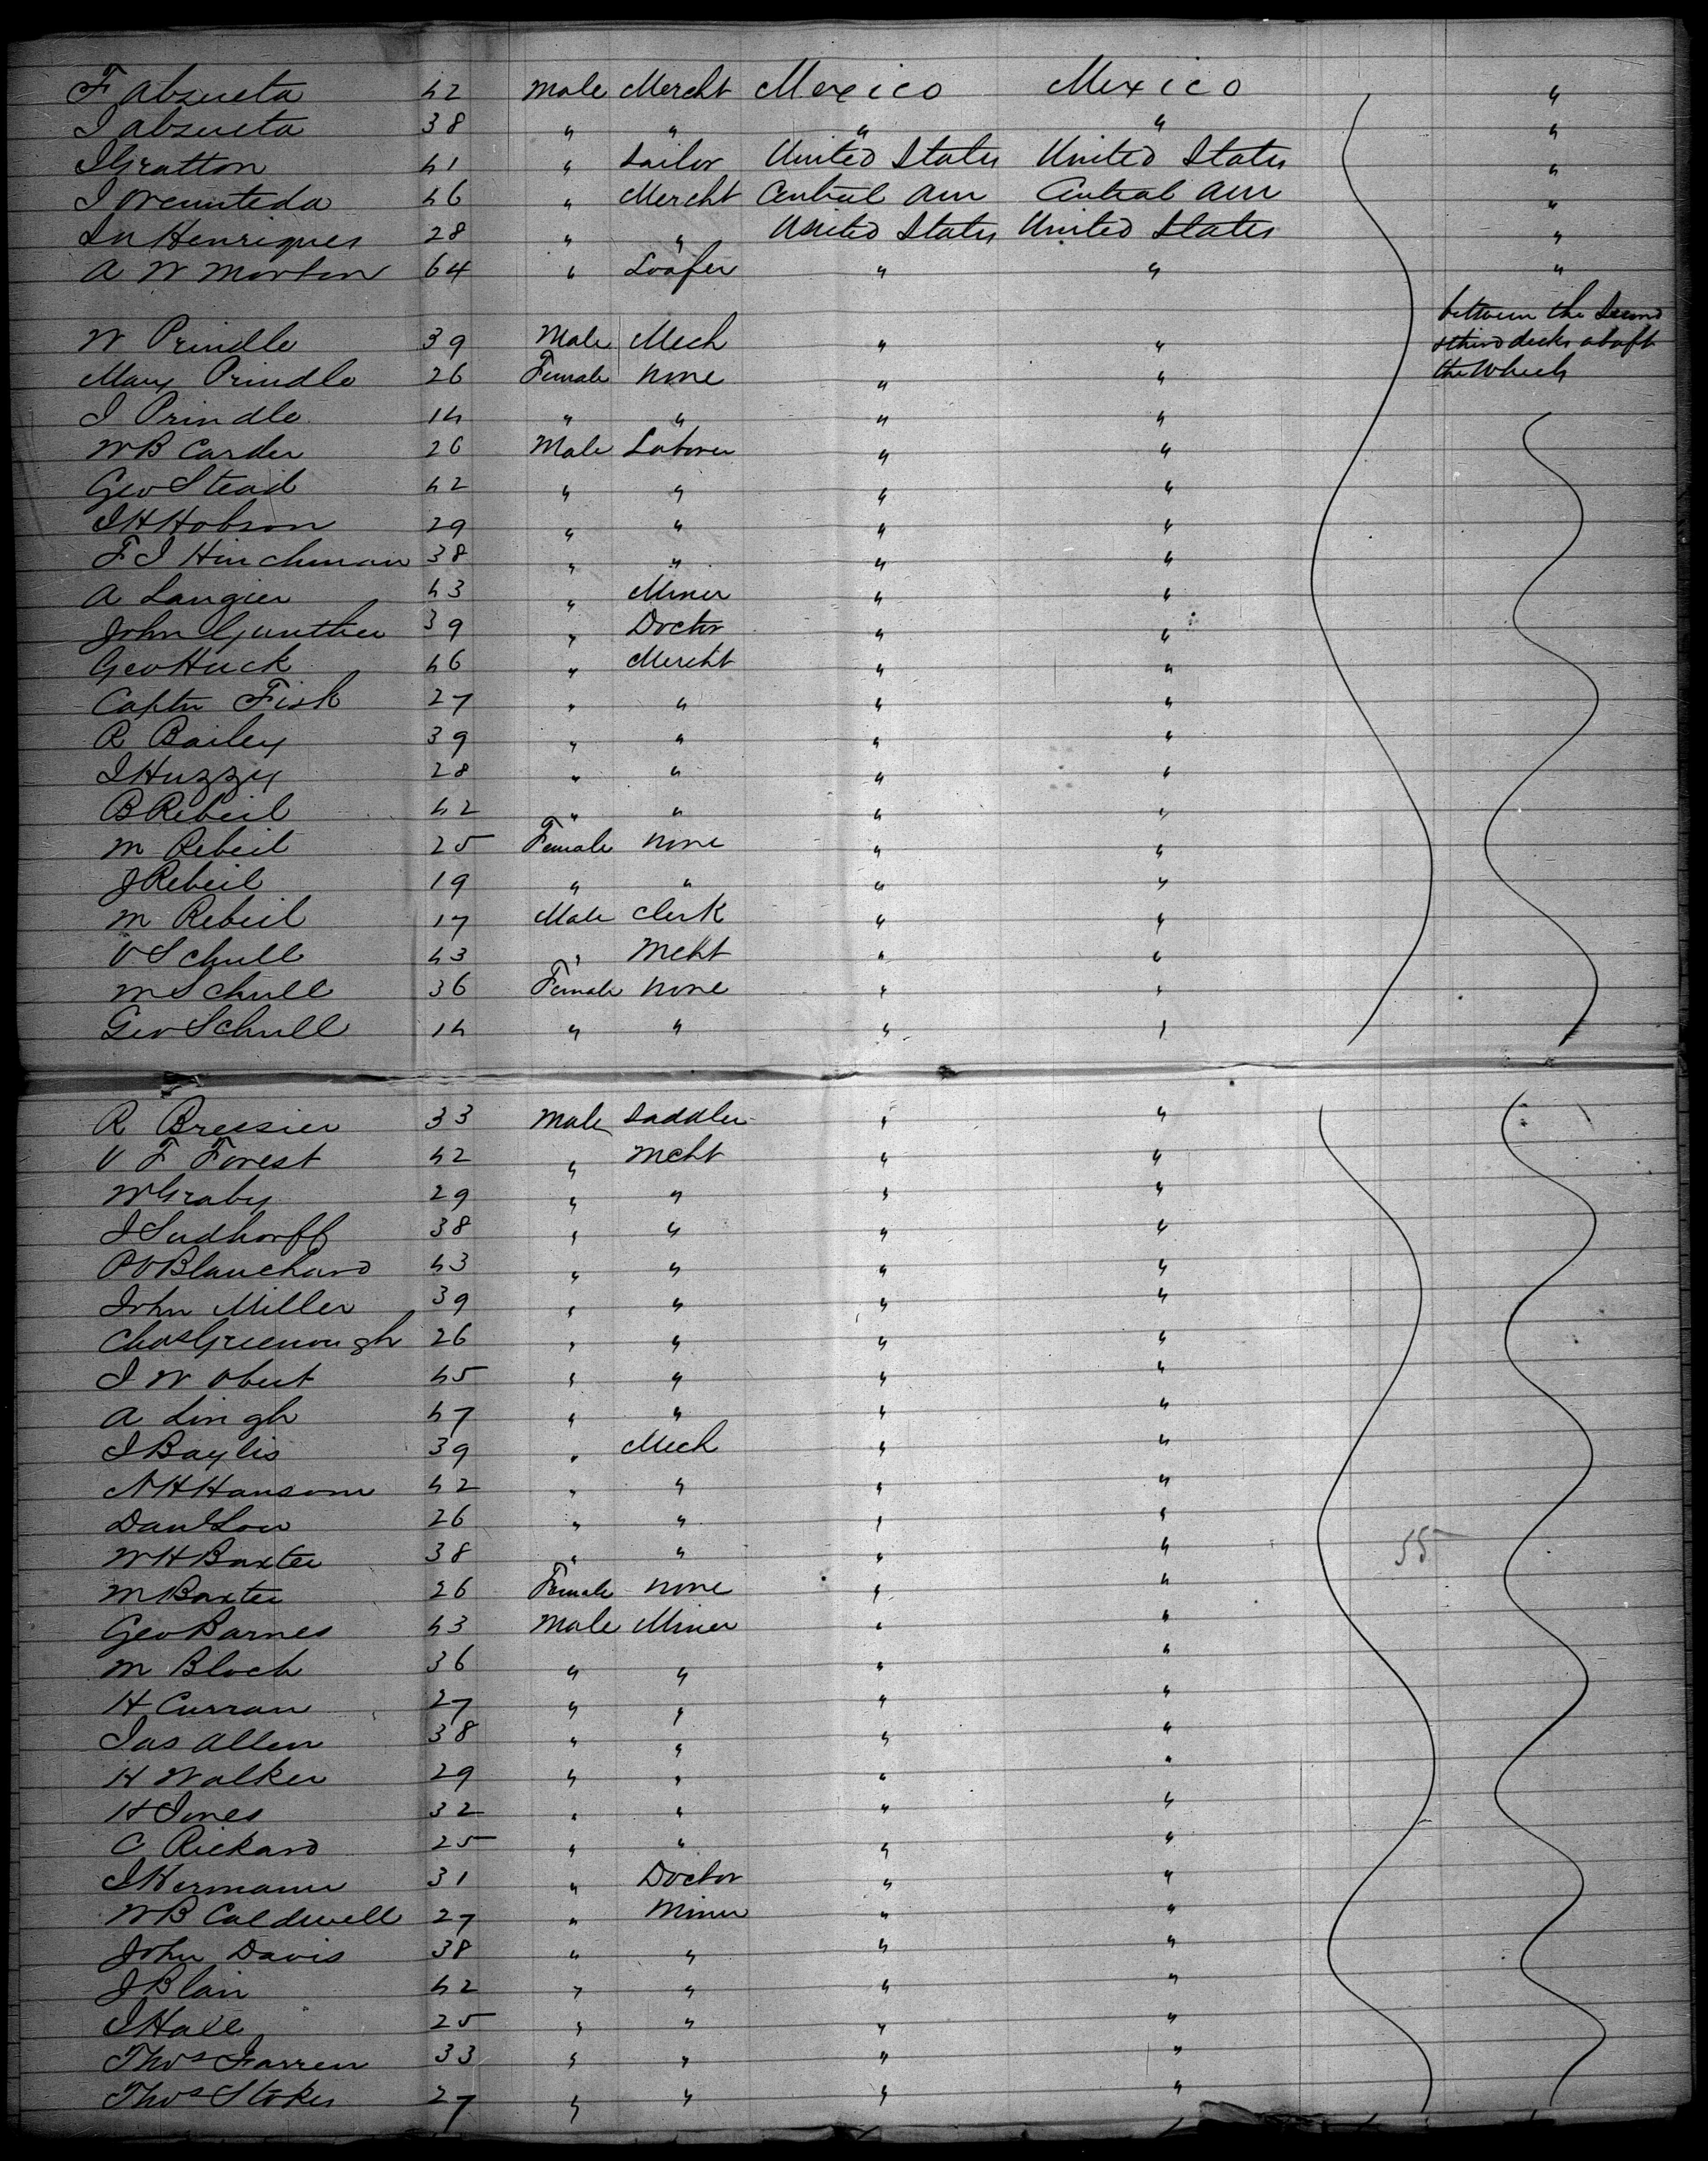 F Abzueta 42 Male Mercht Mexico Mexico "
I Abzueta 38 " " " " "
I Gratton 41 " Sailor United States United States "
I 46 " Mercht Central Am Central Am "
Henriques 28 " " United States United States "
A W Morton 64 " Loafer " " "
between the Second
W Prindle 39 Male Mech " " & third decks abaft
Mary Prindle 26 Female None " " the Wheels
I Prindle 14 " " " "
W B Carder 26 Male Laborer " "
Geo Stead 42 " " " "
I H Hobson 29 " " " "
F I Hinchman 38 " " " "
A Langier 43 " Miner " "
John Gunther 39 " Doctor " "
Geo Huck 46 " Mercht " "
Captn Fisk 27 " " " "
R Bailey 39 " " " "
I Huzzy 28 " " " "
B Rebeil 42 " " " "
M Rebeil 25 Female None " "
J Rebeil 19 " " " "
M Rebeil 17 Male Clerk " "
V Schull 43 " Mcht " "
M Schull 36 Female None " "
Geo Schull 14 " " " "
R Bressier 33 Male Saddler " "
V F Forest 42 " Mcht " "
W Graby 29 " " " "
I Sudhorff 38 " " " "
P V Blanchard 43 " " " "
John Miller 39 " " " "
Chas Greenough 26 " " " "
I W Obert 45 " " " "
A Lingh 47 " " " "
I Baylis 39 " Mech " "
N H Hansom 42 " " " "
Danl Low 26 " " " "
W H Baxter 38 " " " " 55
M Baxter 26 Female None " "
Geo Barnes 43 Male Miner " "
M Bloch 36 " " " "
H Curran 27 " " " "
Jas Allen 38 " " " "
H Walker 29 " " " "
H Jones 32 " " " "
C Rickard 25 " " " "
I Hermann 31 " Doctor " "
W B Caldwell 27 " Miner " "
John Davis 38 " " " "
J Blair 42 " " " "
I Hall 25 " " " "
Thos Farren 33 " " " "
Thos Stokes 27 " " " "